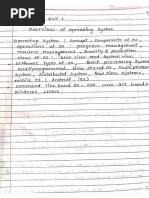 Unit 1
Overviews of operating System
Operating System: Concept, components of OS,
operations of OS: program management,
resource management, Security & protection
views of OS: User view and System view
different types of OS: Batch processing System
multiprogrammed, time shared OS, multiproces
system, distributed System, Real time systems,
mobile OS (Android, IOS)
Command line based OS - DOS, Unix GUI based OS
Windows, Linux